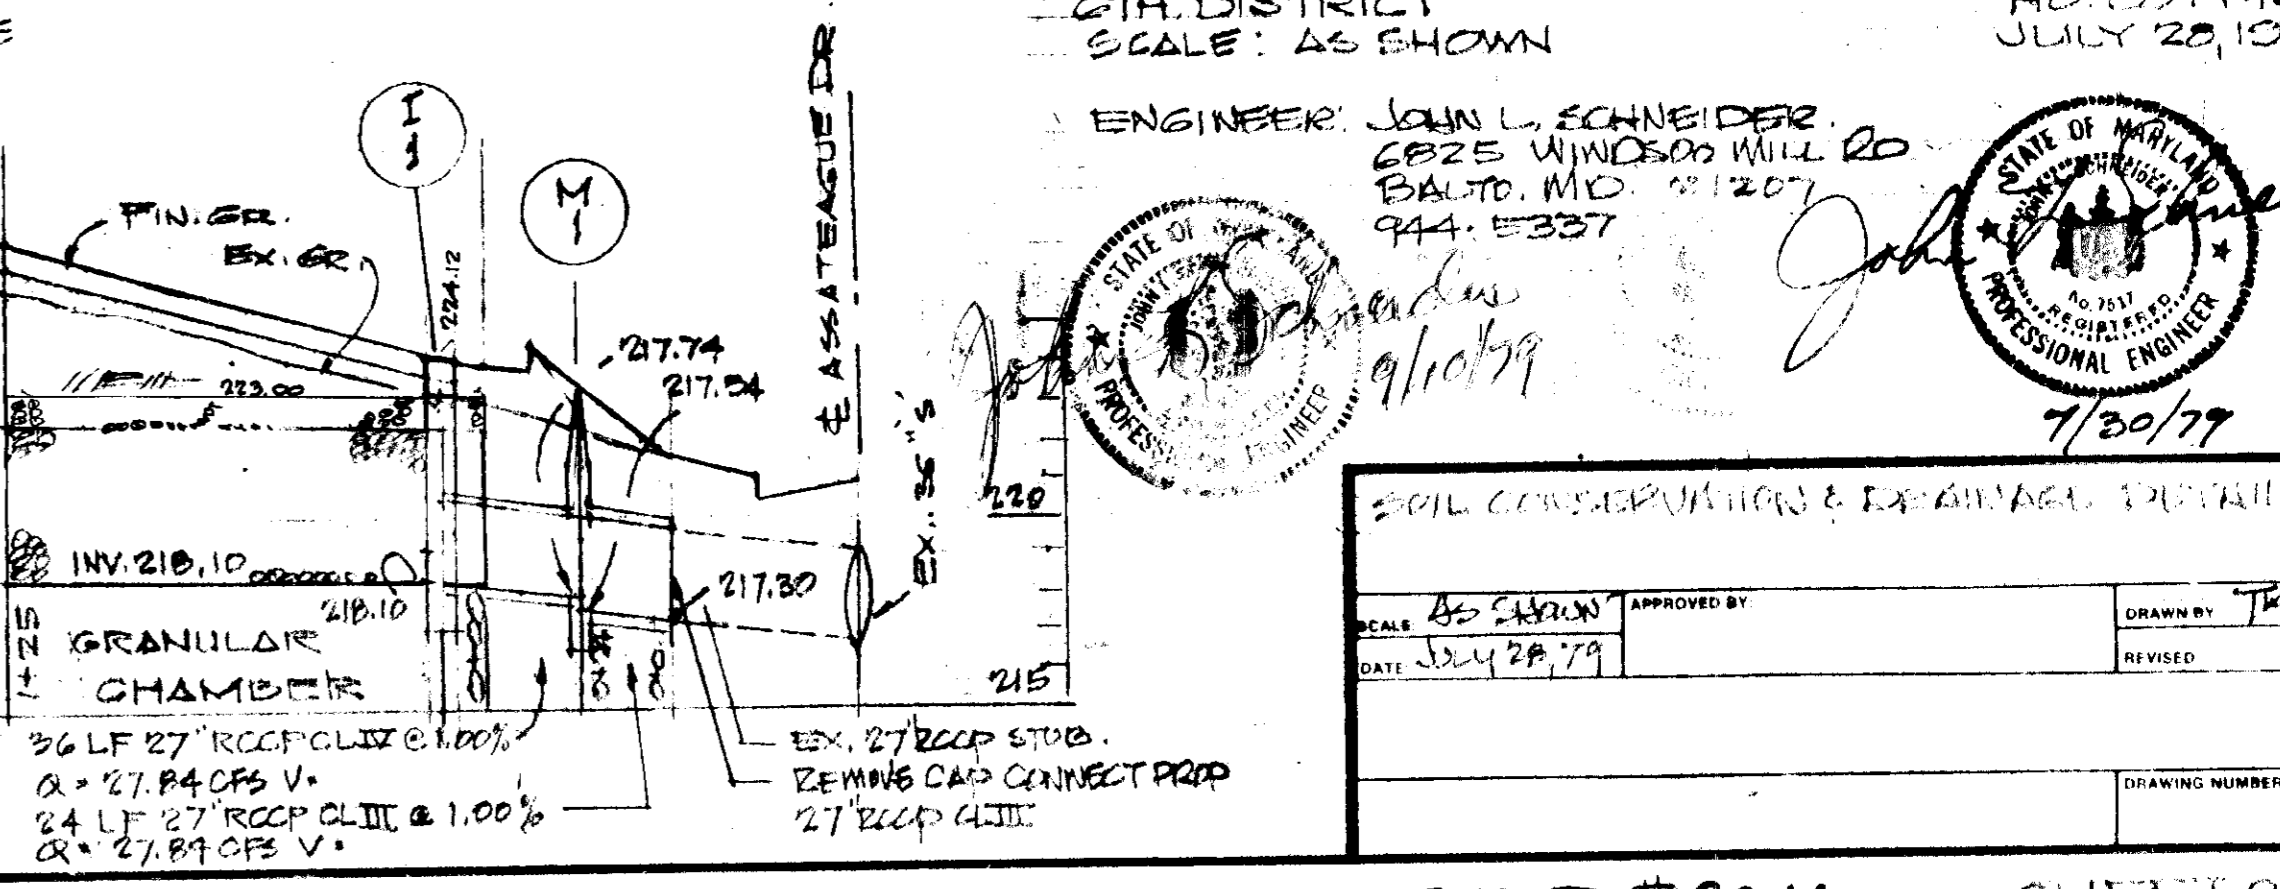 6TH. DISTRICT
SCALE: AS SHOWN
JULY 28, 19
ENGINEER: JOHN L. SCHNEIDER.
6825 WINDSOR MILL RD
BALTO. MD. 21207
944.5337
STATE OF MARYLAND
JOHN L. SCHNEIDER
No. 7517
REGISTERED
PROFESSIONAL ENGINEER
7/30/79
STATE OF
PROFESSIONAL ENGINEER
John L Schneider
9/10/79
I
2
M
1
FIN. GR.
EX. GR.
224.12
217.74
217.54
223.00
℄ ASSATEAGUE DR.
EX. "S"
220
INV. 218.10
218.10
217.30
215
1+25
GRANULAR
CHAMBER
36 LF 27" RCCP CL IV @ 1.00%
Q = 27.84 CFS V =
24 LF 27" RCCP CL III @ 1.00%
Q = 27.84 CFS V =
EX. 27" RCCP STUB.
REMOVE CAP CONNECT PROP
27" RCCP CL III
SOIL CONSERVATION & DRAINAGE DETAIL
SCALE: AS SHOWN
APPROVED BY:
DRAWN BY
DATE: July 28, 79
REVISED
DRAWING NUMBER